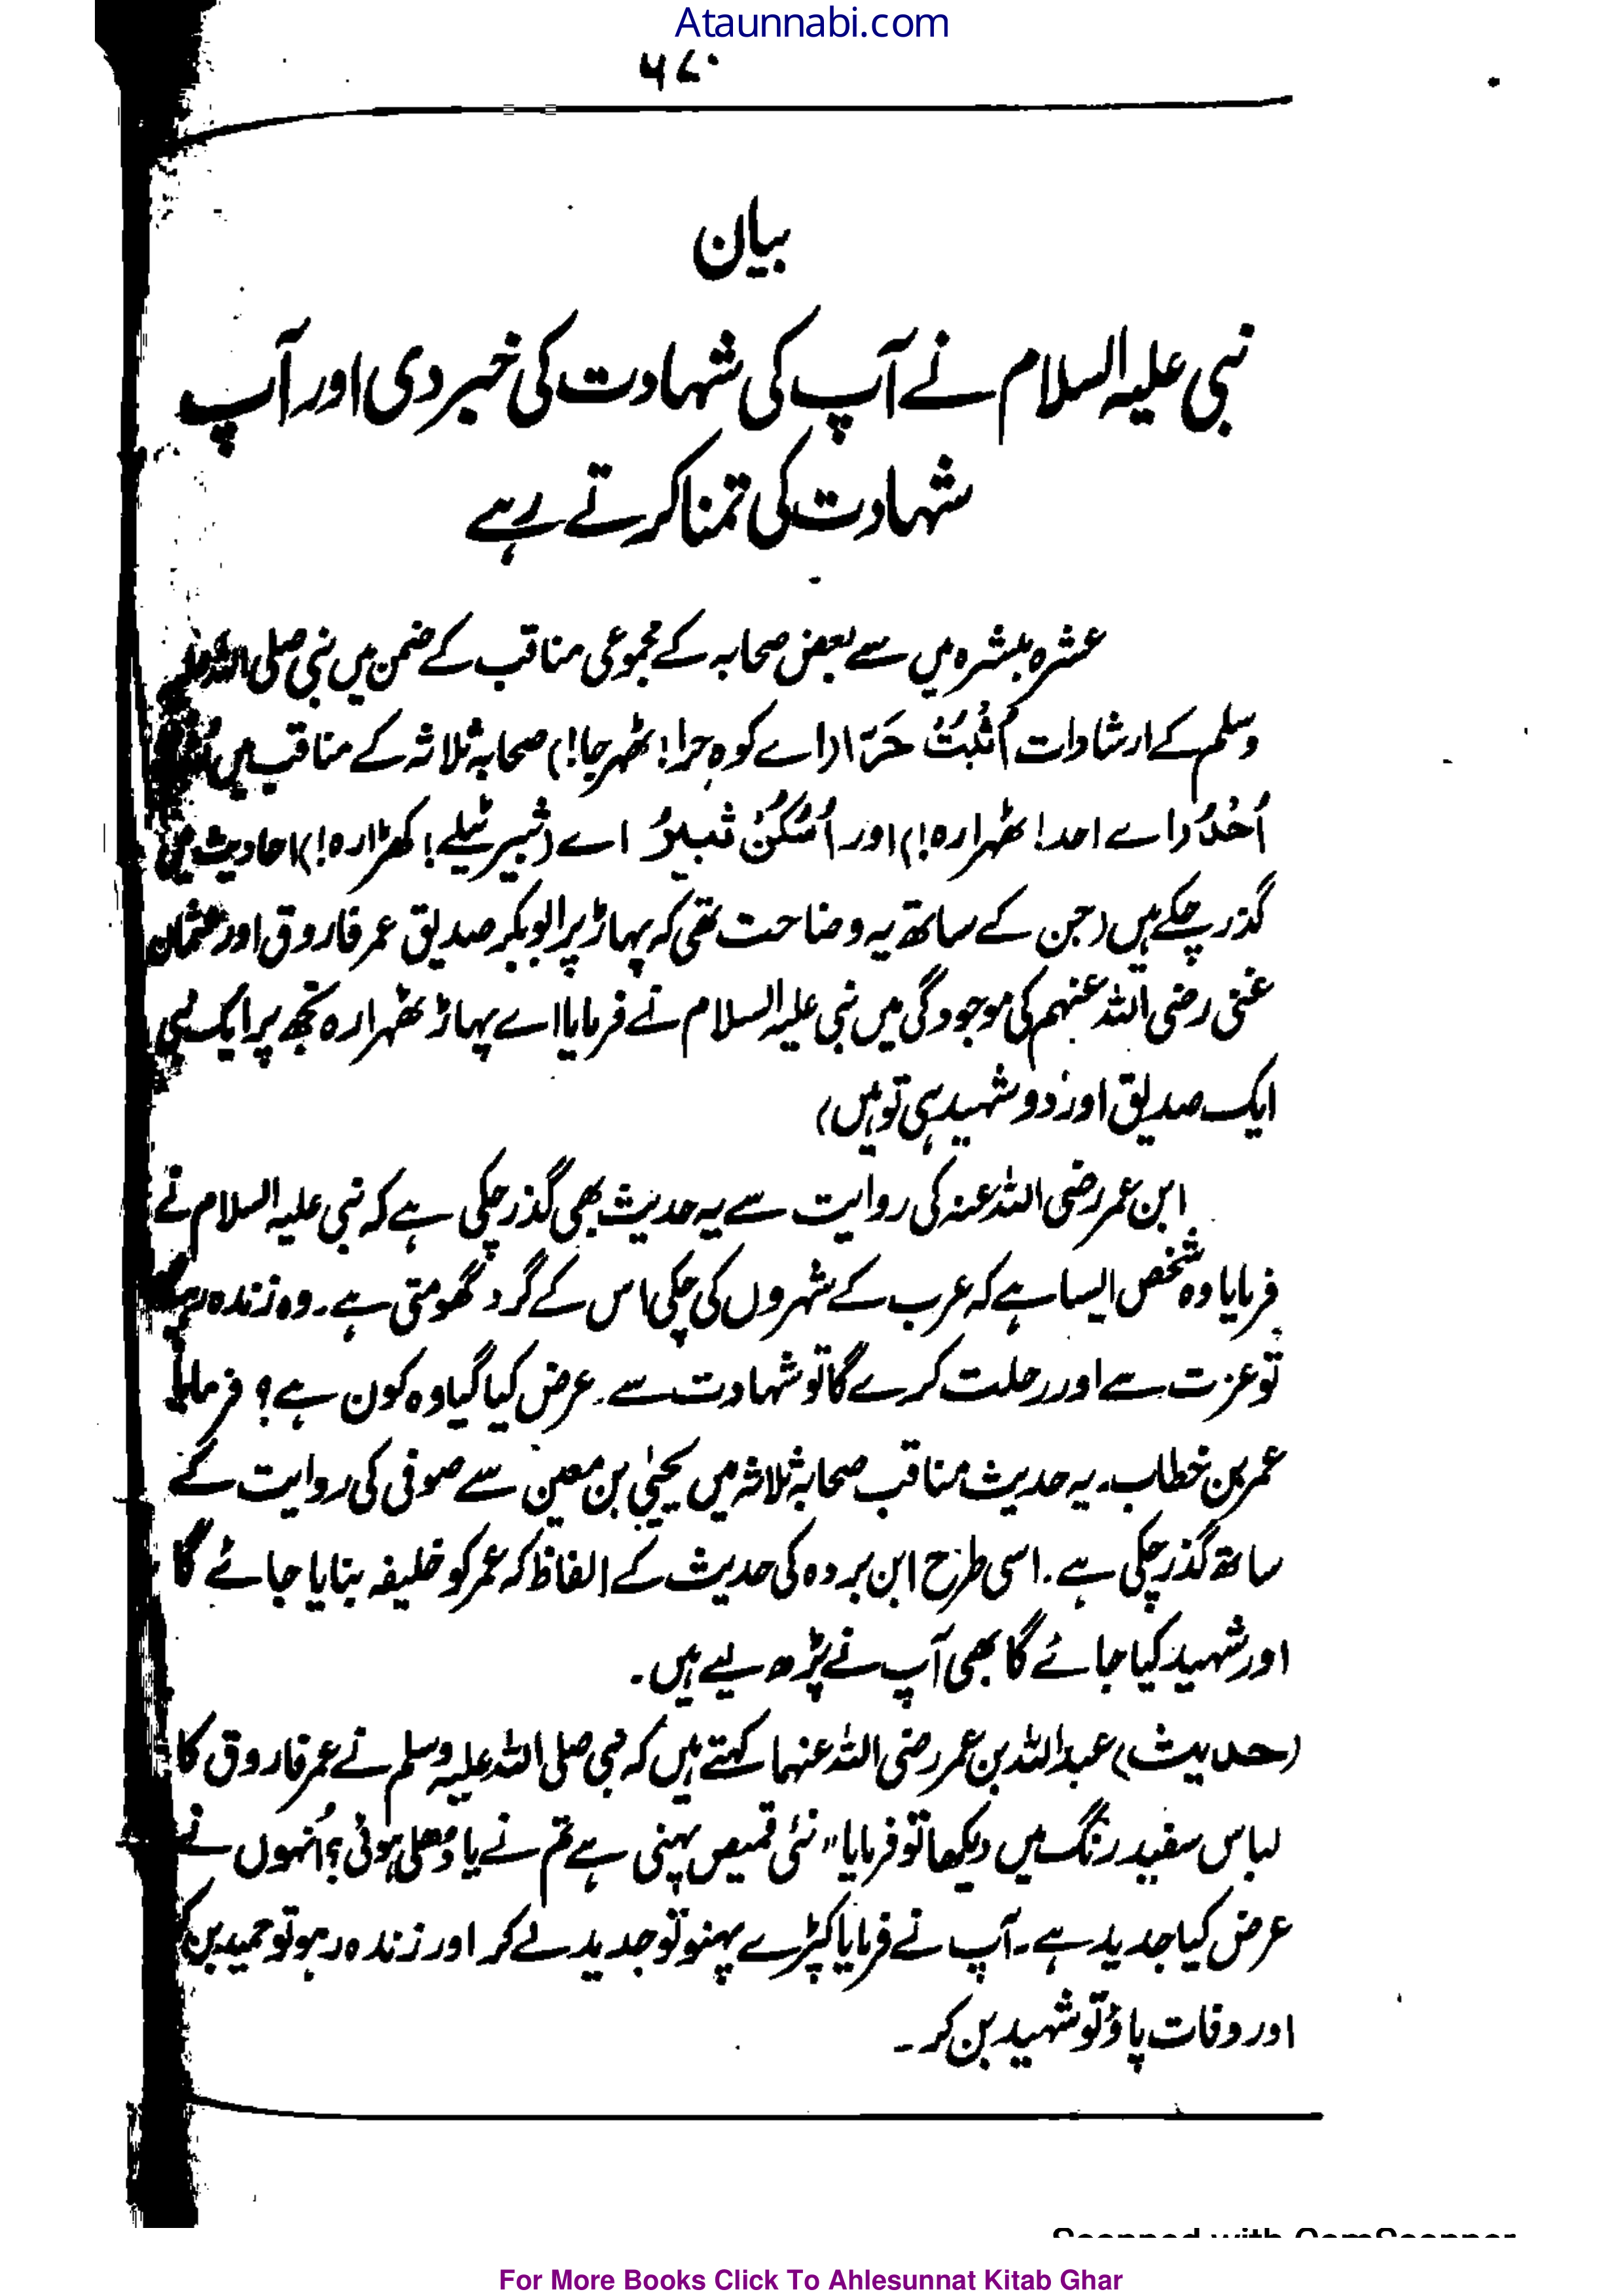 Ataunnabi.com
۵۷۰
بیان
نبی علیہ السلام نے آپ کی شہادت کی خبر دی اور آپ
شہادت کی تمنا کرتے رہے
عشرہ مبشرہ میں سے بعض صحابہ کے مجموعی مناقب کے ضمن میں نبی صلی اللہ علیہ
وسلم کے ارشادات اُثْبُتْ حَرَا (اے کوہِ حرا! ٹھہر جا!) صحابہ ثلاثہ کے مناقب میں
اُحُدُ (اے احد! ٹھہرا رہ!) اور اُسْکُنْ ثَبِیْرُ اے (ثبیر ٹیلے! کھڑا رہ!) احادیث میں
گذر چکے ہیں (جن کے ساتھ یہ وضاحت تھی کہ پہاڑ پر ابوبکر صدیق عمر فاروق اور عثمان
غنی رضی اللہ عنہم کی موجودگی میں نبی علیہ السلام نے فرمایا اے پہاڑ ٹھہرا رہ تجھ پر ایک نبی
ایک صدیق اور دو شہید ہی تو ہیں)
ابن عمر رضی اللہ عنہ کی روایت سے یہ حدیث بھی گذر چکی ہے کہ نبی علیہ السلام نے
فرمایا وہ شخص ایسا ہے کہ عرب کے شہروں کی چکی اس کے گرد گھومتی ہے۔ وہ زندہ
تو عزت سے اور رحلت کرے گا تو شہادت سے۔ عرض کیا گیا وہ کون ہے؟ فرمایا
عمر بن خطاب۔ یہ حدیث مناقب صحابہ ثلاثہ میں یحییٰ بن معین سے صوفی کی روایت کے
ساتھ گذر چکی ہے۔ اسی طرح ابن بردہ کی حدیث کے الفاظ کہ عمر کو خلیفہ بنایا جائے گا
اور شہید کیا جائے گا بھی آپ نے پڑھ لیے ہیں۔
(حدیث) عبداللہ بن عمر رضی اللہ عنہما کہتے ہیں کہ نبی صلی اللہ علیہ وسلم نے عمر فاروق کا
لباس سفید رنگ میں دیکھا تو فرمایا "نئی قمیص پہنی ہے تم نے یا دُھلی ہوئی؟ اُنہوں نے
عرض کیا جدید ہے۔ آپ نے فرمایا کپڑے پہنو تو جدید لے کر اور زندہ رہو تو حمید بن کر
اور وفات پاؤ تو شہید بن کر۔
For More Books Click To Ahlesunnat Kitab Ghar